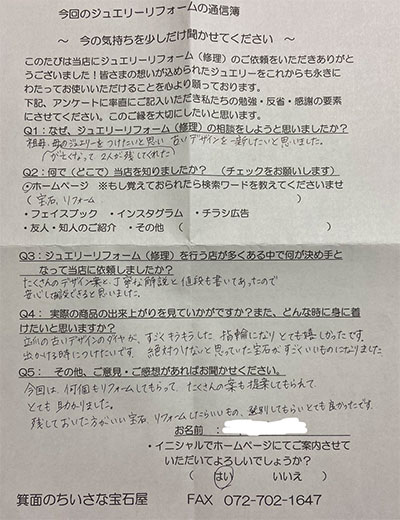 今回のジュエリーリフォームの通信簿
～ 今の気持ちを少しだけ聞かせてください ～
このたびは当店にジュエリーリフォーム(修理)のご依頼をいただきありがと
うございました！皆さまの想いが込められたジュエリーをこれからも永きに
わたってお使いいただけることを心より願っております。
下記、アンケートに率直にご記入いただき私たちの勉強・反省・感謝の要素
にさせてください。このご縁を大切にしたいと思います。
Q1：なぜ、ジュエリーリフォーム(修理)の相談をしようと思いましたか？
祖母、母のジュエリーをつけたいと思い 古いデザインを一新したいと思いました。
(が亡くなって 2人が残してくれた)
Q2：何で(どこで)当店を知りましたか？ (チェックをお願いします)
◎ホームページ ※もし覚えておられたら検索ワードを教えてくださいませ
(宝石、リフォーム )
・フェイスブック ・インスタグラム ・チラシ広告
・友人・知人のご紹介 ・その他 ( )
Q3：ジュエリーリフォーム(修理)を行う店が多くある中で何が決め手と
なって当店に依頼しましたか？
たくさんのデザイン案と、丁寧な解説と値段も書いてあったので
安心して相談できると思いました。
Q4： 実際の商品の出来上がりを見ていかがですか？また、どんな時に身に着
けたいと思いますか？
立爪の古いデザインのダイヤが、すごくすてきな 指輪になりとても嬉しかったです。
出かける時につけたいです。 絶対つけないと思っていた宝石がすごくいいものになりました
Q5： その他、ご意見・ご感想があればお聞かせください。
今回は、何個もリフォームしてもらって、たくさんの案も提案してもらえて
とても助かりました。
残しておいた方がいい宝石、リフォームしたらいいもの、教えてもらいとても良かったです
お名前：
・イニシャルでホームページにてご案内させて
いただいてよろしいでしょうか？
( はい いいえ )
箕面のちいさな宝石屋 FAX 072-702-1647